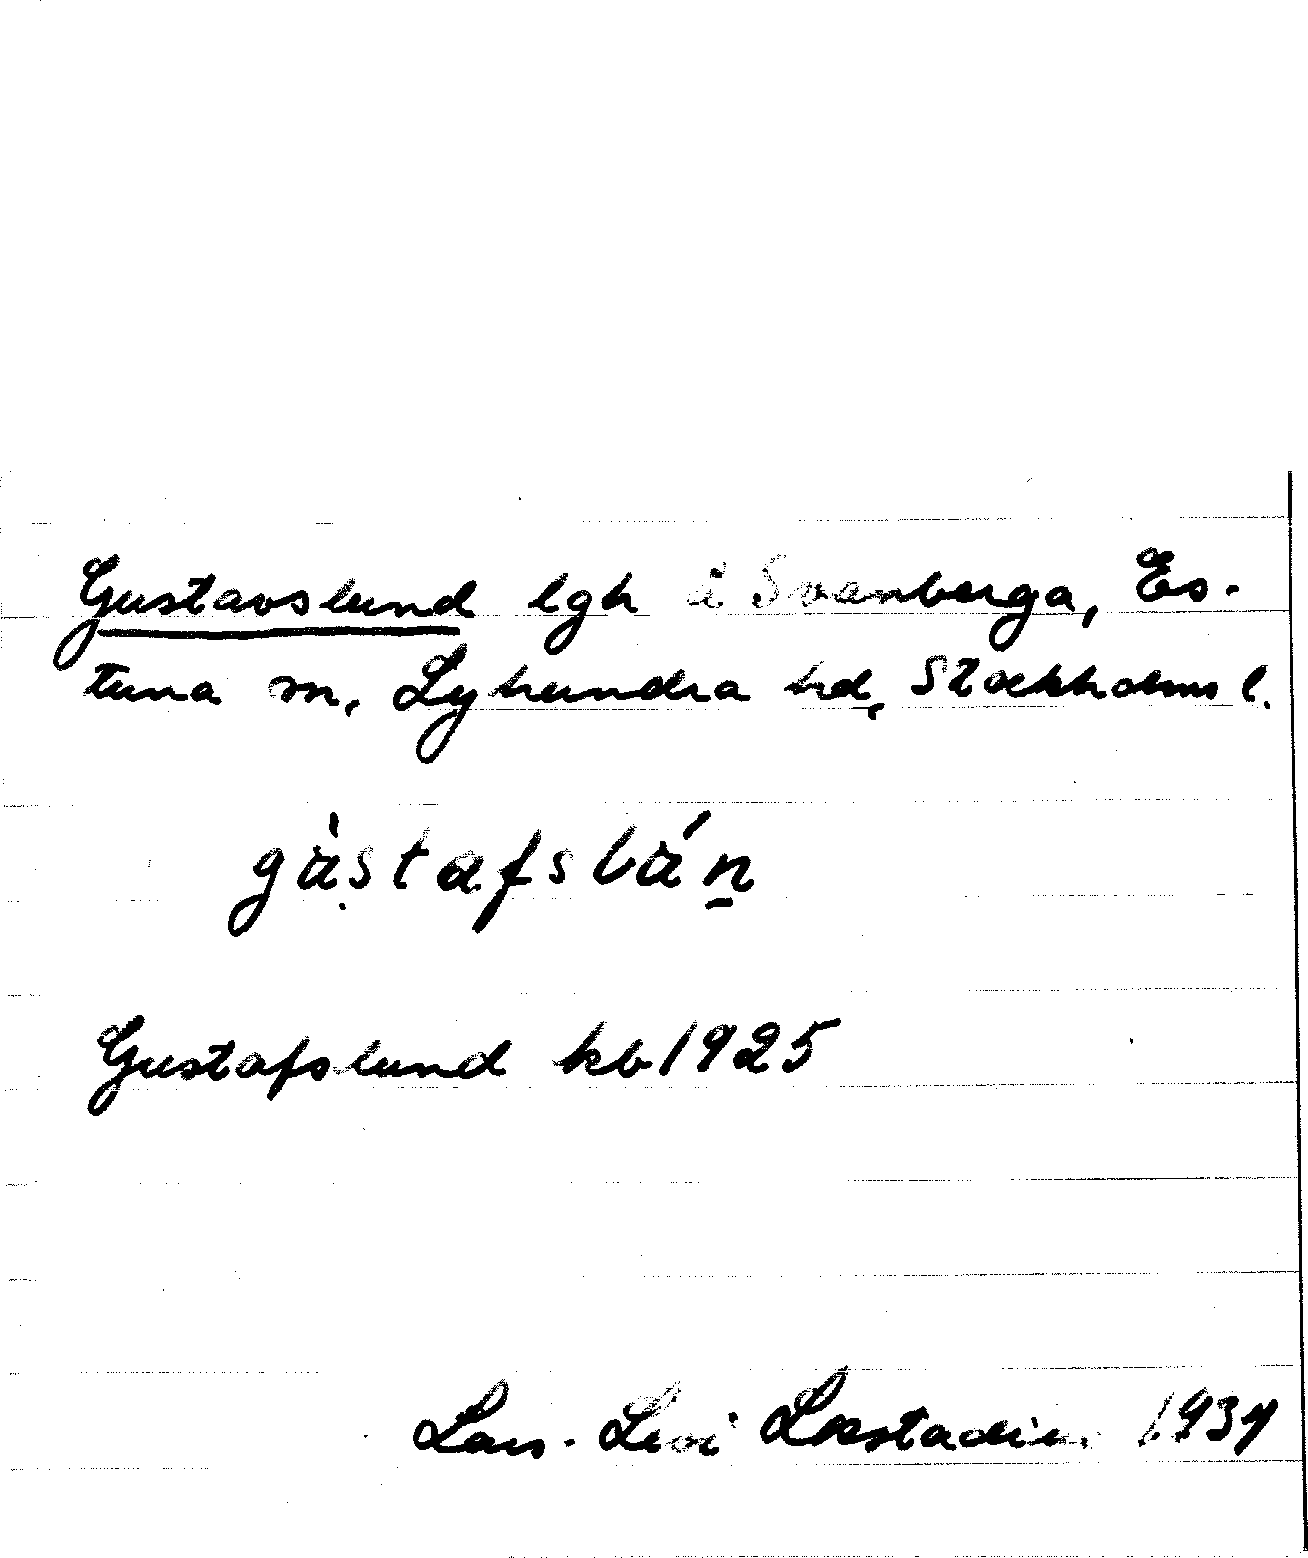 Gustavslund lgh å Svanberga, Es-
tuna sn, Lyhundra hd, Stockholms l.
Gustafslund kb 1925
Lars-Levi Læstadius